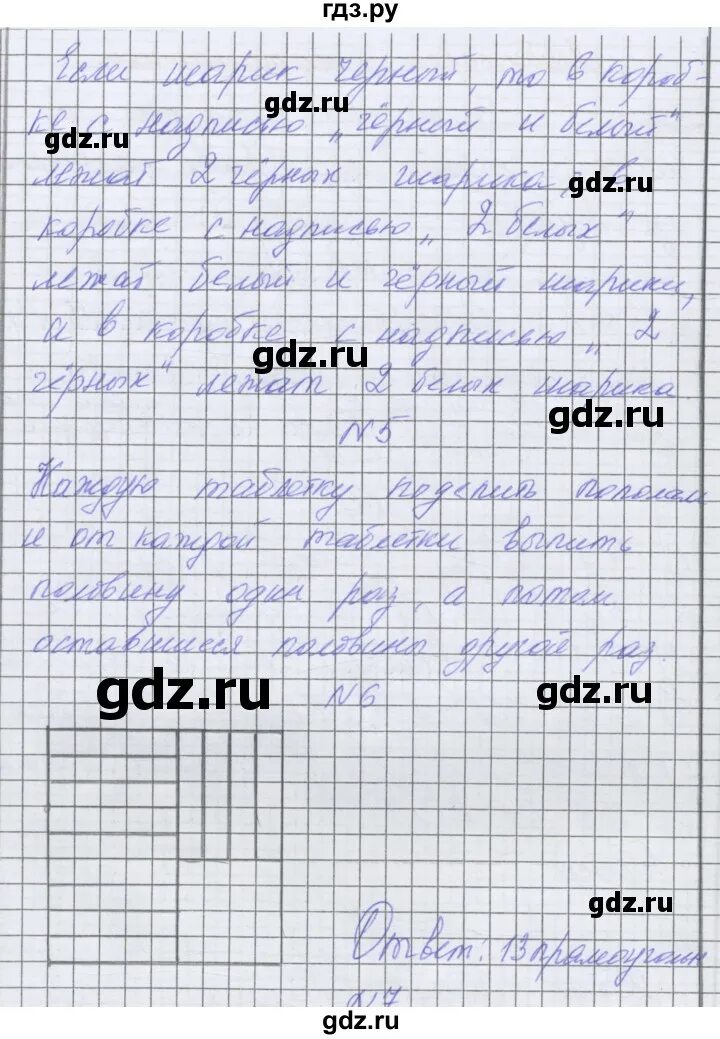 гдз.ру
Если шарик чёрный, то в короб-
gdz.ru
gdz.ru
ке с надписью „чёрный и белый"
лежат 2 чёрных шарика, в
gdz.ru
коробке с надписью „2 белых"
лежат белый и чёрный шарики,
а в коробке с надписью „2
gdz.ru
чёрных" лежат 2 белых шарика
gdz.ru
№5
Каждую таблетку поделить пополам
и от каждой таблетки выпить
половину один раз, а потом
оставшиеся половины другой раз.
gdz.ru
№6
gdz.ru
gdz.ru
Ответ: 13 прямоугольн
gdz.ru
№7
gdz.ru